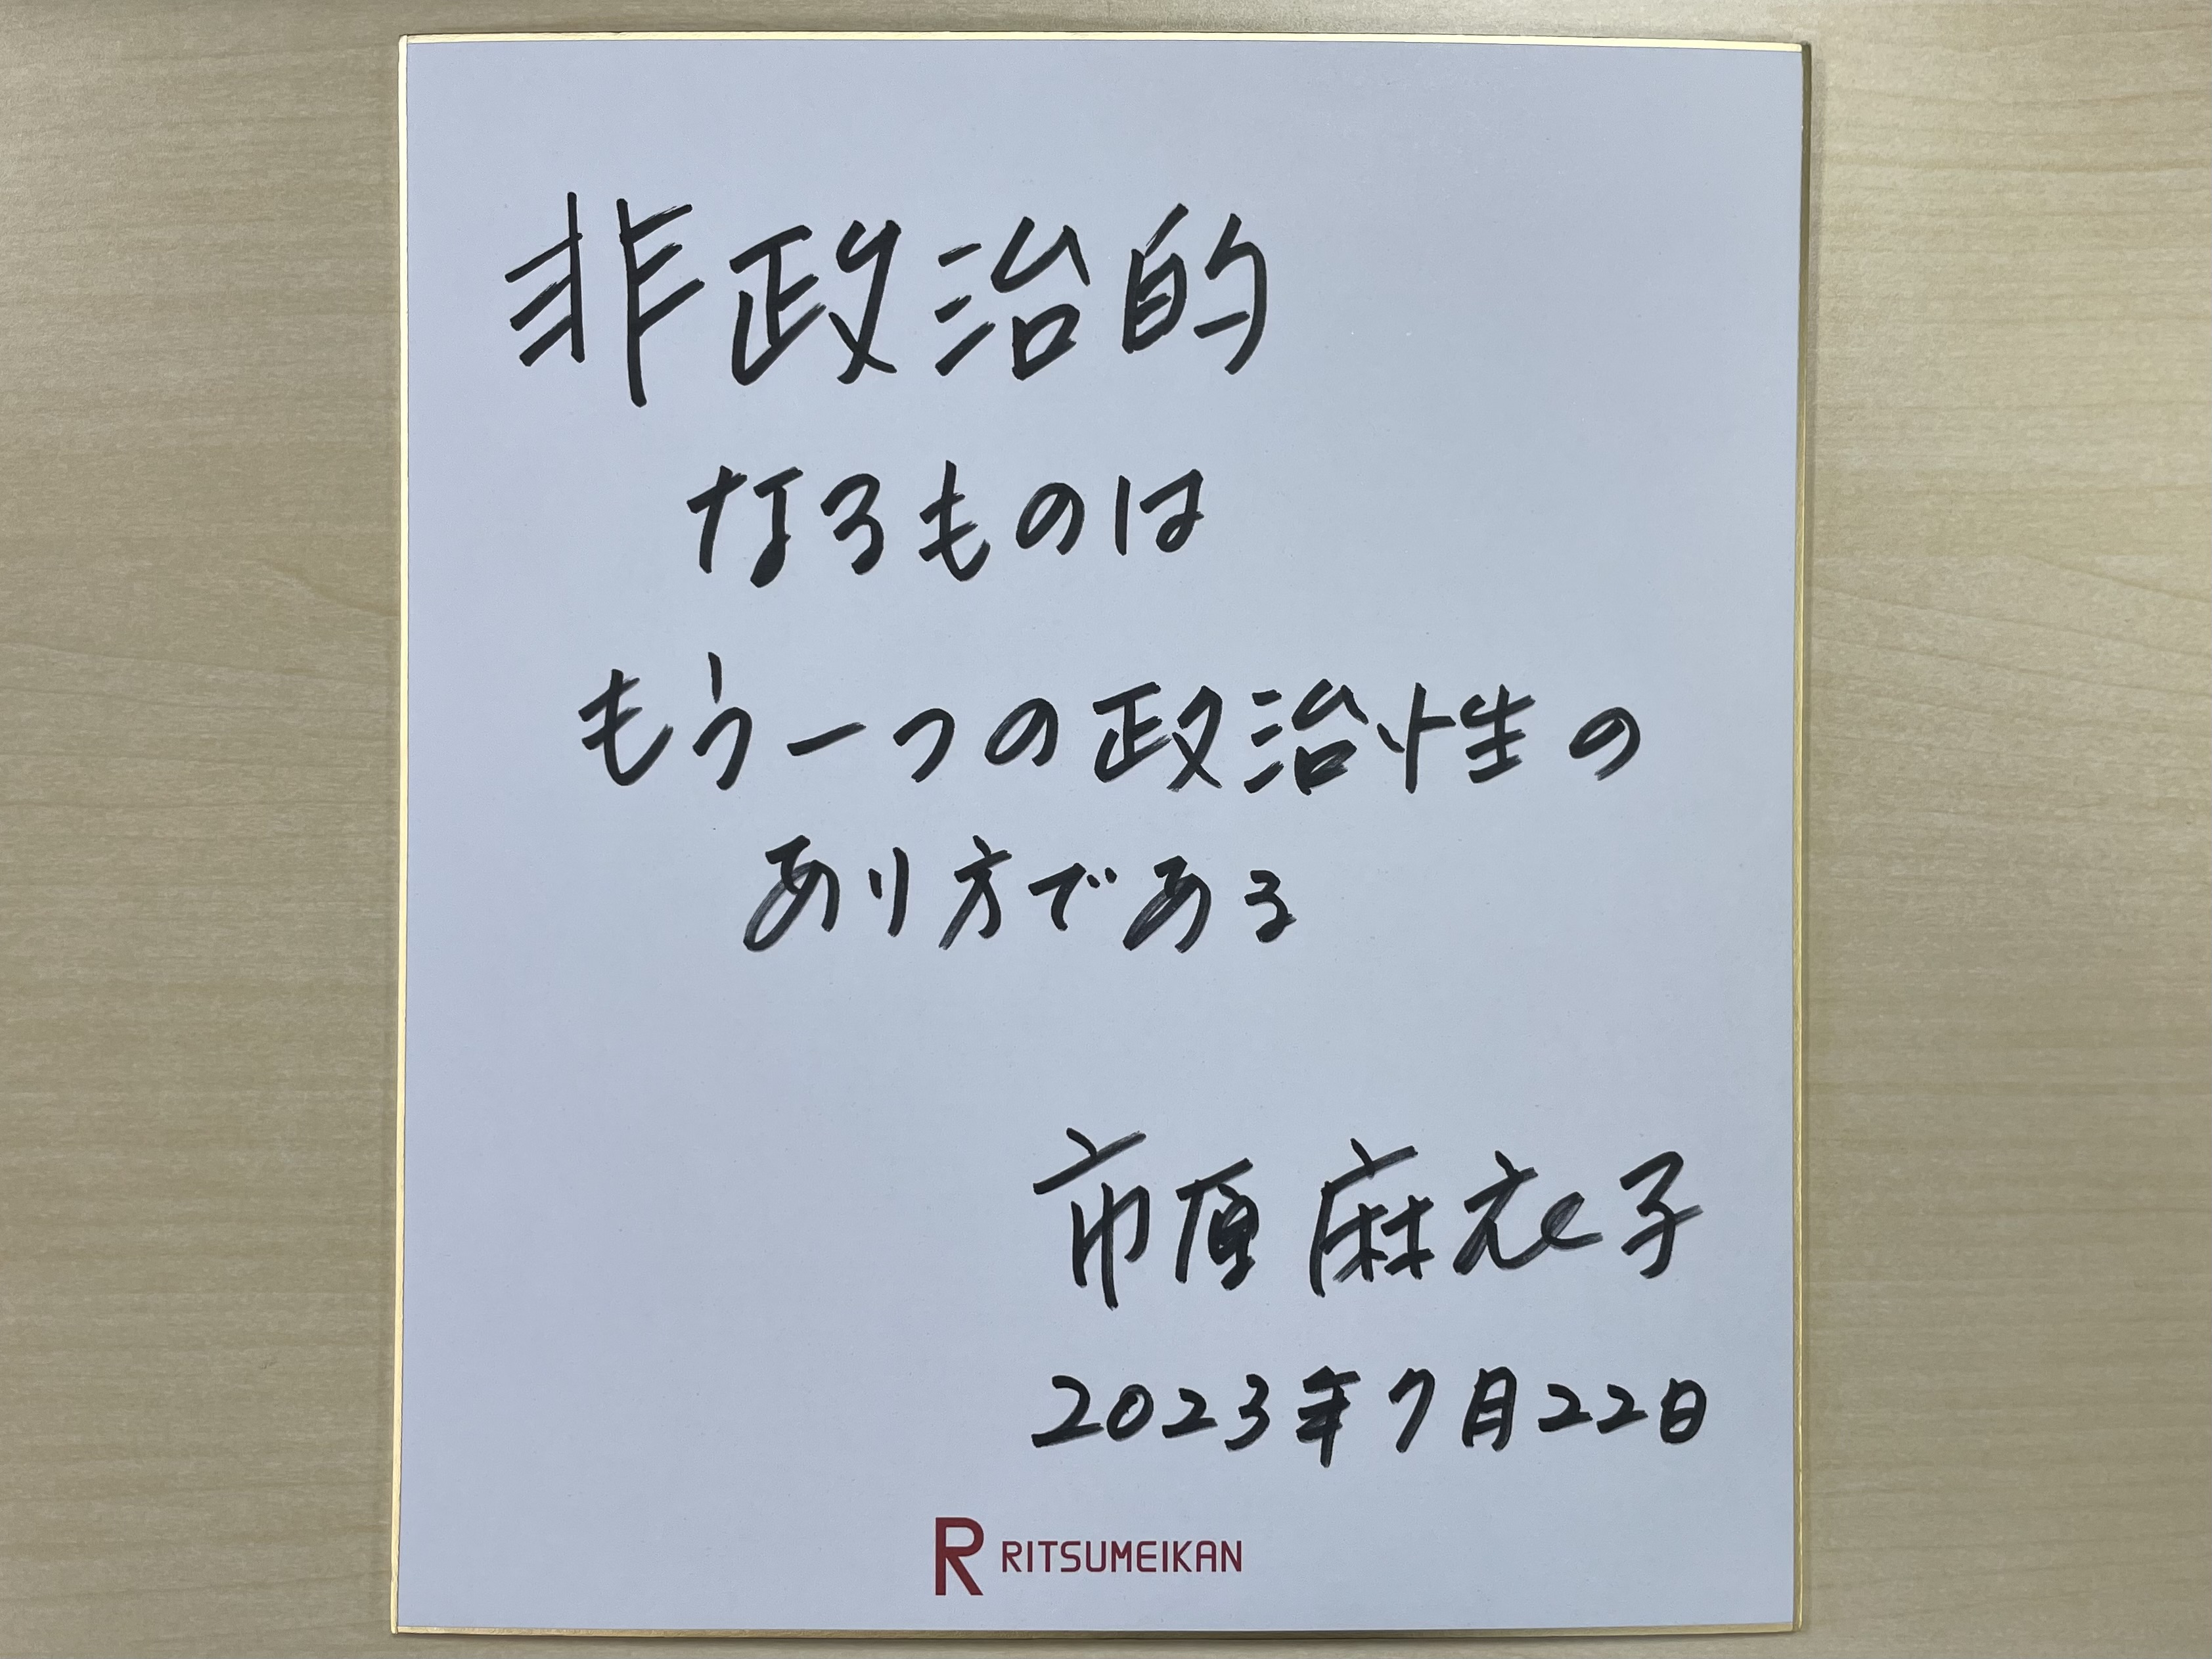 非政治的
なるものは
もう一つの政治性の
あり方である
市原麻衣子
2023年7月22日
R RITSUMEIKAN